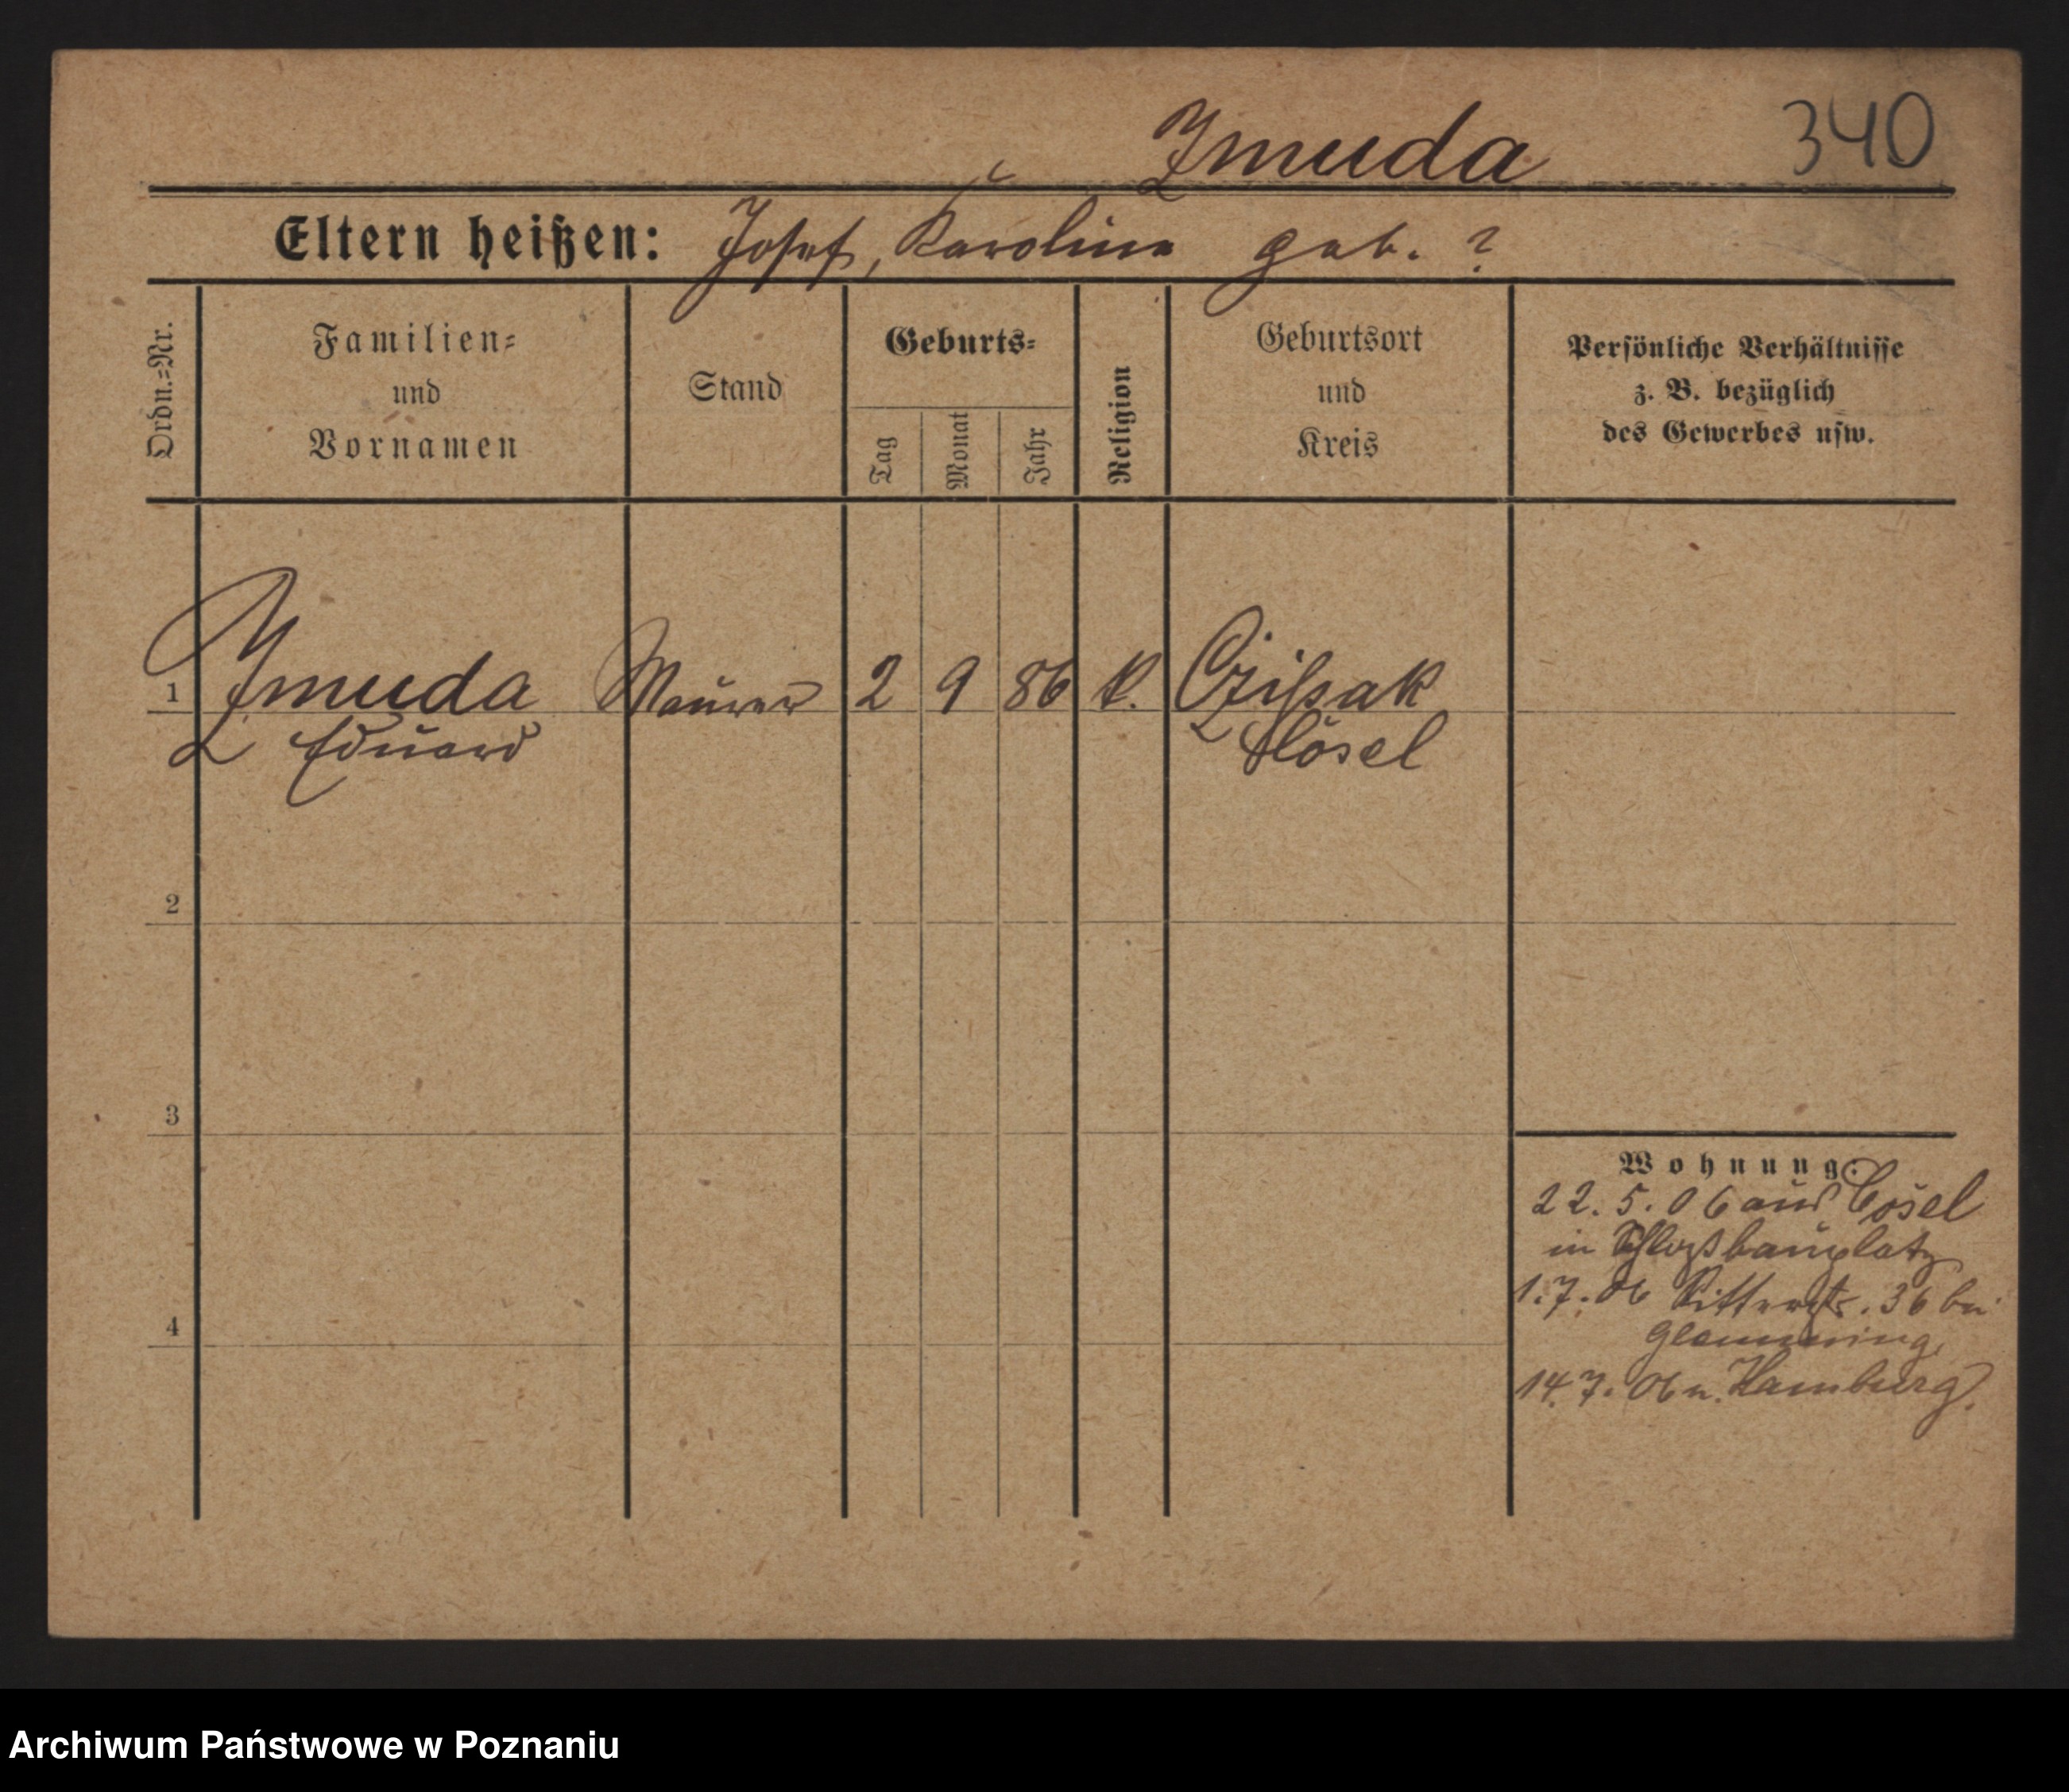 Zmuda 340
Eltern heißen: Josef, Karolina geb. ?
Ordn.=Nr.
Familien=
und
Vornamen
Stand
Geburts=
Tag
Monat
Jahr
Religion
Geburtsort
und
Kreis
Persönliche Verhältnisse
z. B. bezüglich
des Gewerbes usw.
1 Zmuda Maurer 2 9 86 k. Czissak
Eduard Kosel
2
3
4
Wohnung:
22. 5. 06 aus Cosel
in Schloßbauplatz
1. 7. 06 Ritterstr. 36 bei
14. 7. 06 n. Hamburg.
Archiwum Państwowe w Poznaniu